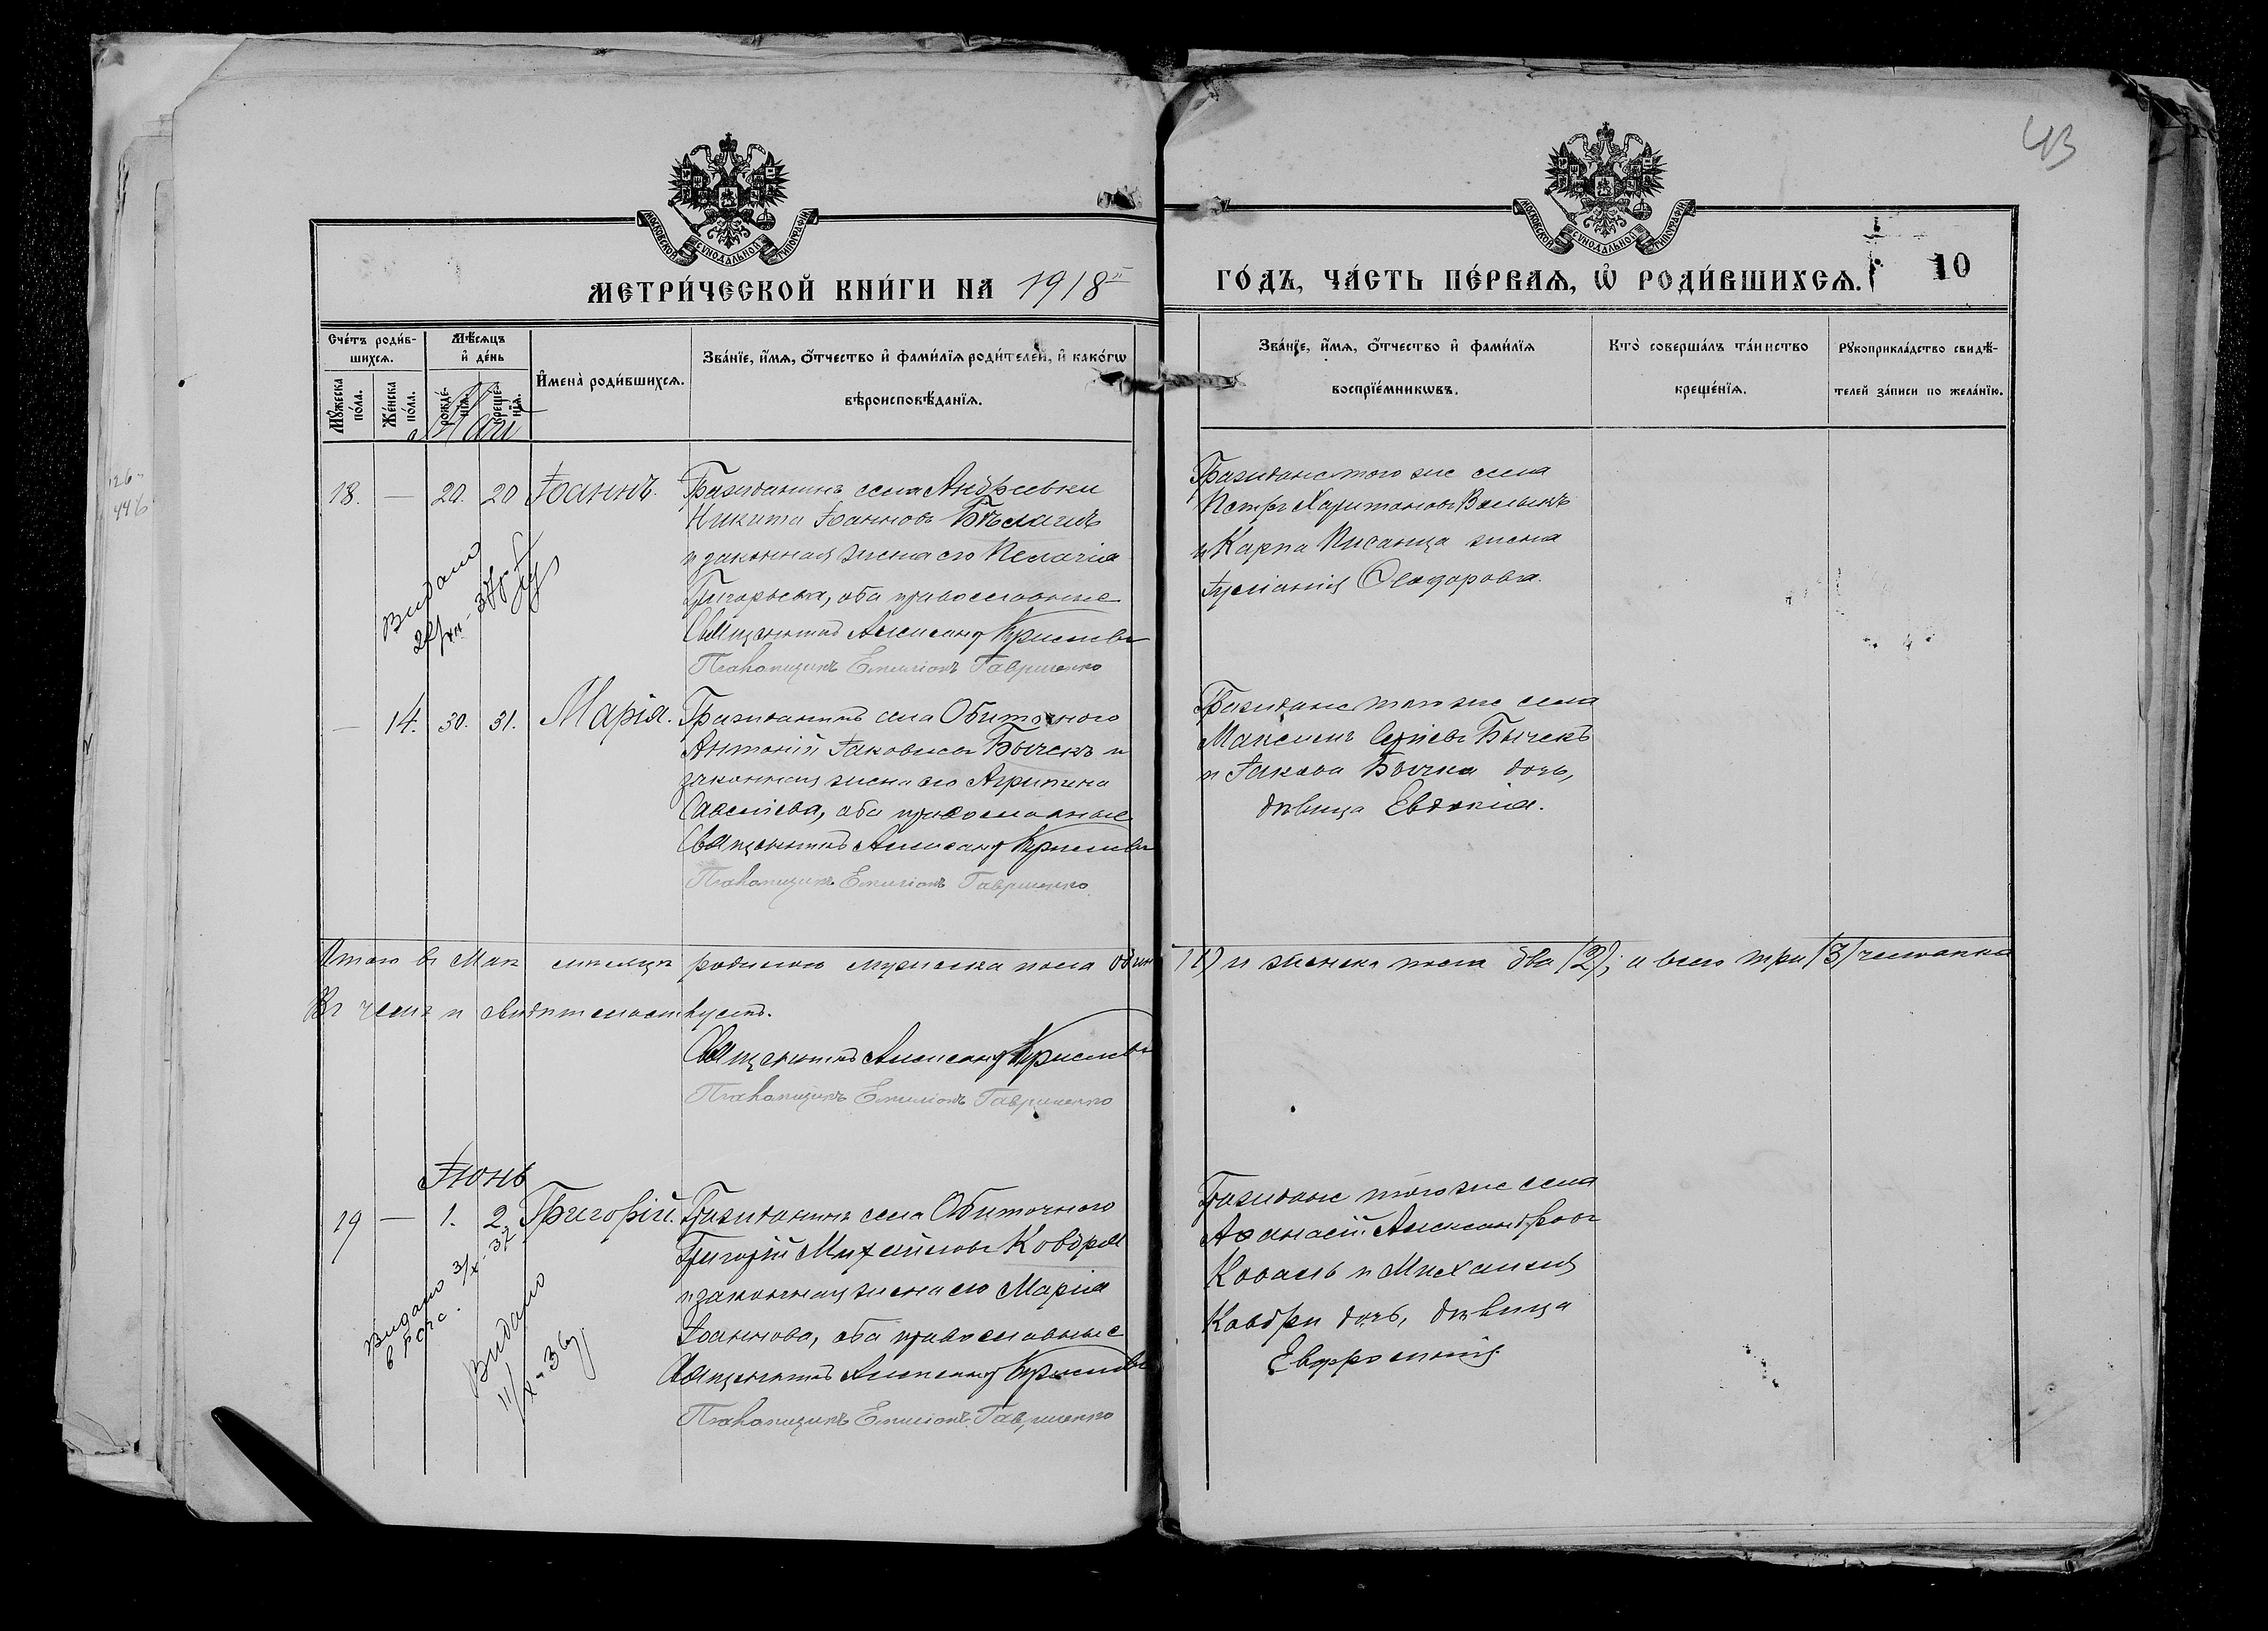 43
МОСКОВСКОЙ СѴНОДАЛЬНОЙ ТИПОГРАФІИ
МОСКОВСКОЙ СѴНОДАЛЬНОЙ ТИПОГРАФІИ
МЕТРИ́ЧЕСКОЙ КНИ́ГИ НА 1918 ГО́ДЪ, ЧА́СТЬ ПЕ́РВАѦ, Ѡ҆ РОДИ́ВШИХСѦ. 10
Сче́тъ роди́в-
шихсѧ.
Мѣ́сѧцъ
и҆ де́нь
Мꙋ́жеска
по́ла.
Же́нска
по́ла.
рожде́-
нїѧ.
креще́-
нїѧ.
И҆мена̀ роди́вшихсѧ.
Зва́нїе, и҆́мѧ, ѻ҆́тчество и҆ фами́лїѧ роди́телей, и҆ како́гѡ
вѣроисповѣ́данїѧ.
Зва́нїе, и҆́мѧ, ѻ҆́тчество и҆ фами́лїѧ
воспрїе́мникѡвъ.
Кто̀ соверша́лъ та́инство
креще́нїѧ.
Рꙋкоприкла́дство свидѣ́-
телей за́писи по жела́нїю.
Май
18. — 20. 20 Іоаннъ.
Гражданинъ села Андреевки
Никита Іоанновъ Бѣлагилъ
и законная жена его Пелагія
Григорьева, оба православные
Священникъ Александр
Псаломщикъ Емиліанъ Гавриленко
Граждане того же села
Петръ Харитоновъ
и Карпа Писанца жена
Іуліанія Ѳеодорова.
Видано
— 14. 30. 31. Марія.
Гражданинъ села Обиточного
Антоній Іаковлевъ Бычекъ и
законная жена его Агрипина
Савеліева, оба православные
Священникъ Александр
Псаломщикъ Емиліанъ Гавриленко
Граждане того же села
Максимъ Бычекъ
и Іакова Бычка дочь,
дѣвица Евдокія.
Итого въ Маѣ мѣсяцѣ родилось мужеска пола один (1) и женска пола два (2), а всего три (3) человѣка
Въ чемъ и свидѣтельствуемъ.
Священникъ Александр
Псаломщикъ Емиліанъ Гавриленко
Іюнь
19 — 1. 2. Григорій.
Гражданинъ села Обиточного
Григорій Михайловъ Ковдря
и законная жена его Марія
Іоаннова, оба православные
Священникъ Александр
Псаломщикъ Емиліанъ Гавриленко
Граждане того же села
Аѳанасій Александровъ
Коваль и Михаила
Ковдри дочь, дѣвица
Евфросинія.
Видано 3/х-37
в РСЧС.
Видано
11/х-36